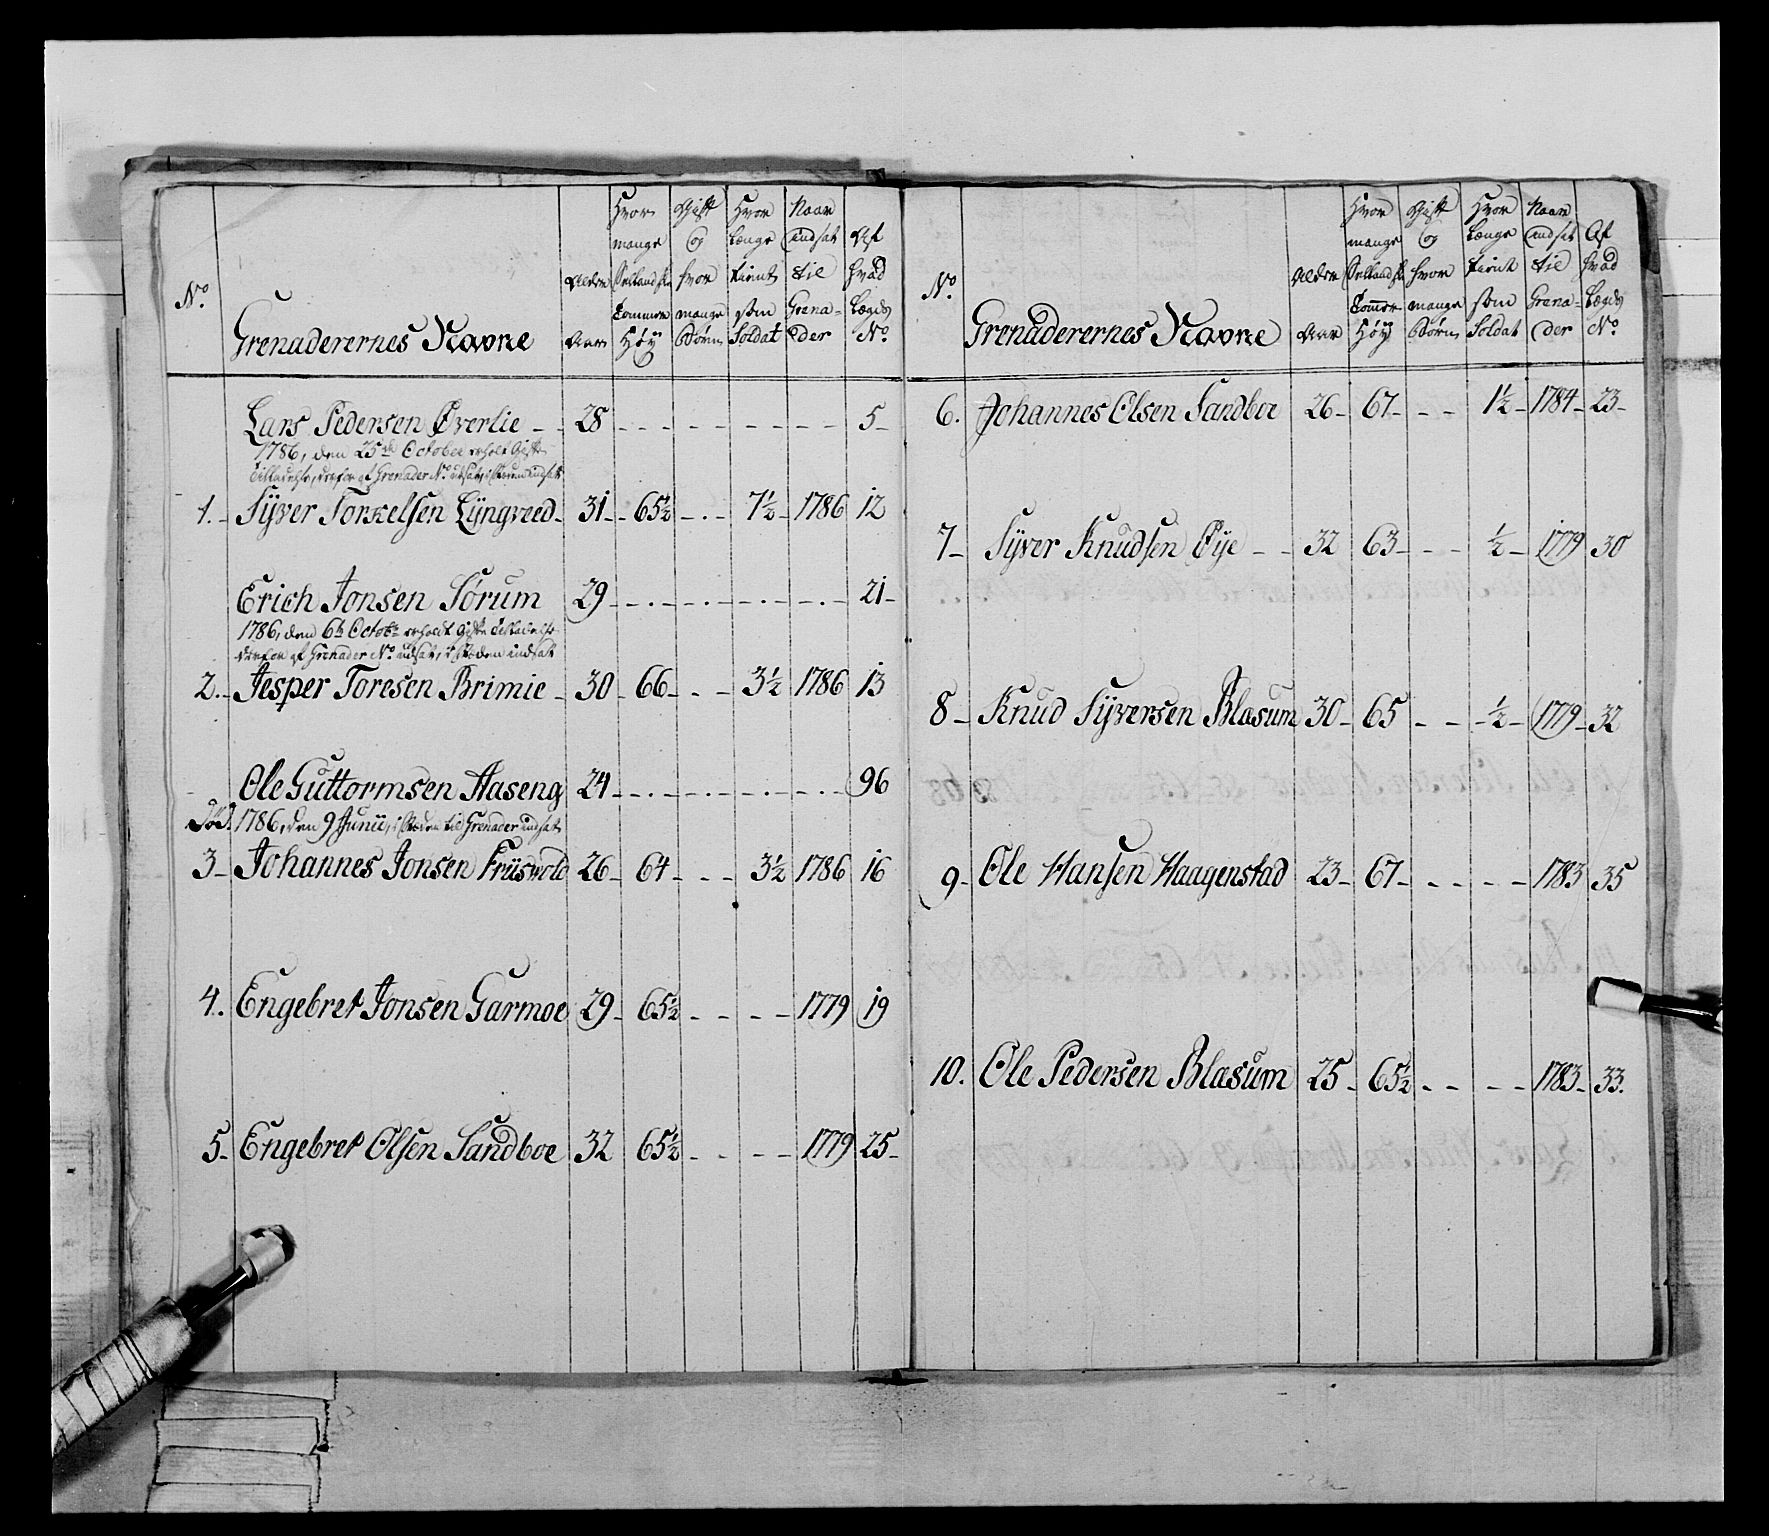 No.
Grenaderernes Navne
Alder Aar
Hvor mange Selland: Tommer Høy
Gift og hvor mange Børn
Hvor længe tient som Soldat
Naar indsat til Grena-der
Af hvad Lægds No.
Lars Pedersen Øverlie - - 28 - - - - - - - - 5 -
1786, den 25de October erholt Gifte
Tilladelse, derfor af Grenader No. udsat, i Steden indsat
1. - Syver Torkelsen Lyngveed - 31 - - 65½ - . - 7½ - 1786 12
Erich Jonsen Sørum 29 - - . - . - . - . - . - 21 -
1786, den 6te Octobr erholdt Gifte Tilladelse
derfor af Grenader No. udsat, i Steden indsatt
2. - Jesper Toresen Brimie - 30 - 66 - . - 3½ 1786 13
Ole Guttormsen Aaseng 24 - - . - . - . - . - 96
Død. 1786, den 9 Junii, i Steden til Grenader indsat
3 - Johannes Jonsen Friisvold 26 - 64 - - - 3½ 1786 16
4. Engebret Jonsen Garmoe 29 - 65½ - - - - 1779 19
5 - Engebret Olsen Sandboe 32 65½ - - - - 1779 25 -
No.
Grenaderernes Navne
Alder Aar
Hvor mange Selland: Tommer Høy
Gift og hvor mange Børn
Hvor længe tient som Soldat
Naar indsat til Grena-der
Af hvad Lægds No.
6. Johannes Olsen Sandboe 26 - 67 - - - 1½ - 1784 - 23 -
7 - Syver Knudsen Øye - - 32 63 - - - ½ - 1779 30
8 - Knud Syversen Blasum 30 - 65 - - - ½ - 1779 - 32
9 - Ole Hansen Haagenstad 23 - 67 - - - - - 1783 35
10. Ole Pedersen Blasum 25 - 65½ - - - - 1783 - 33.